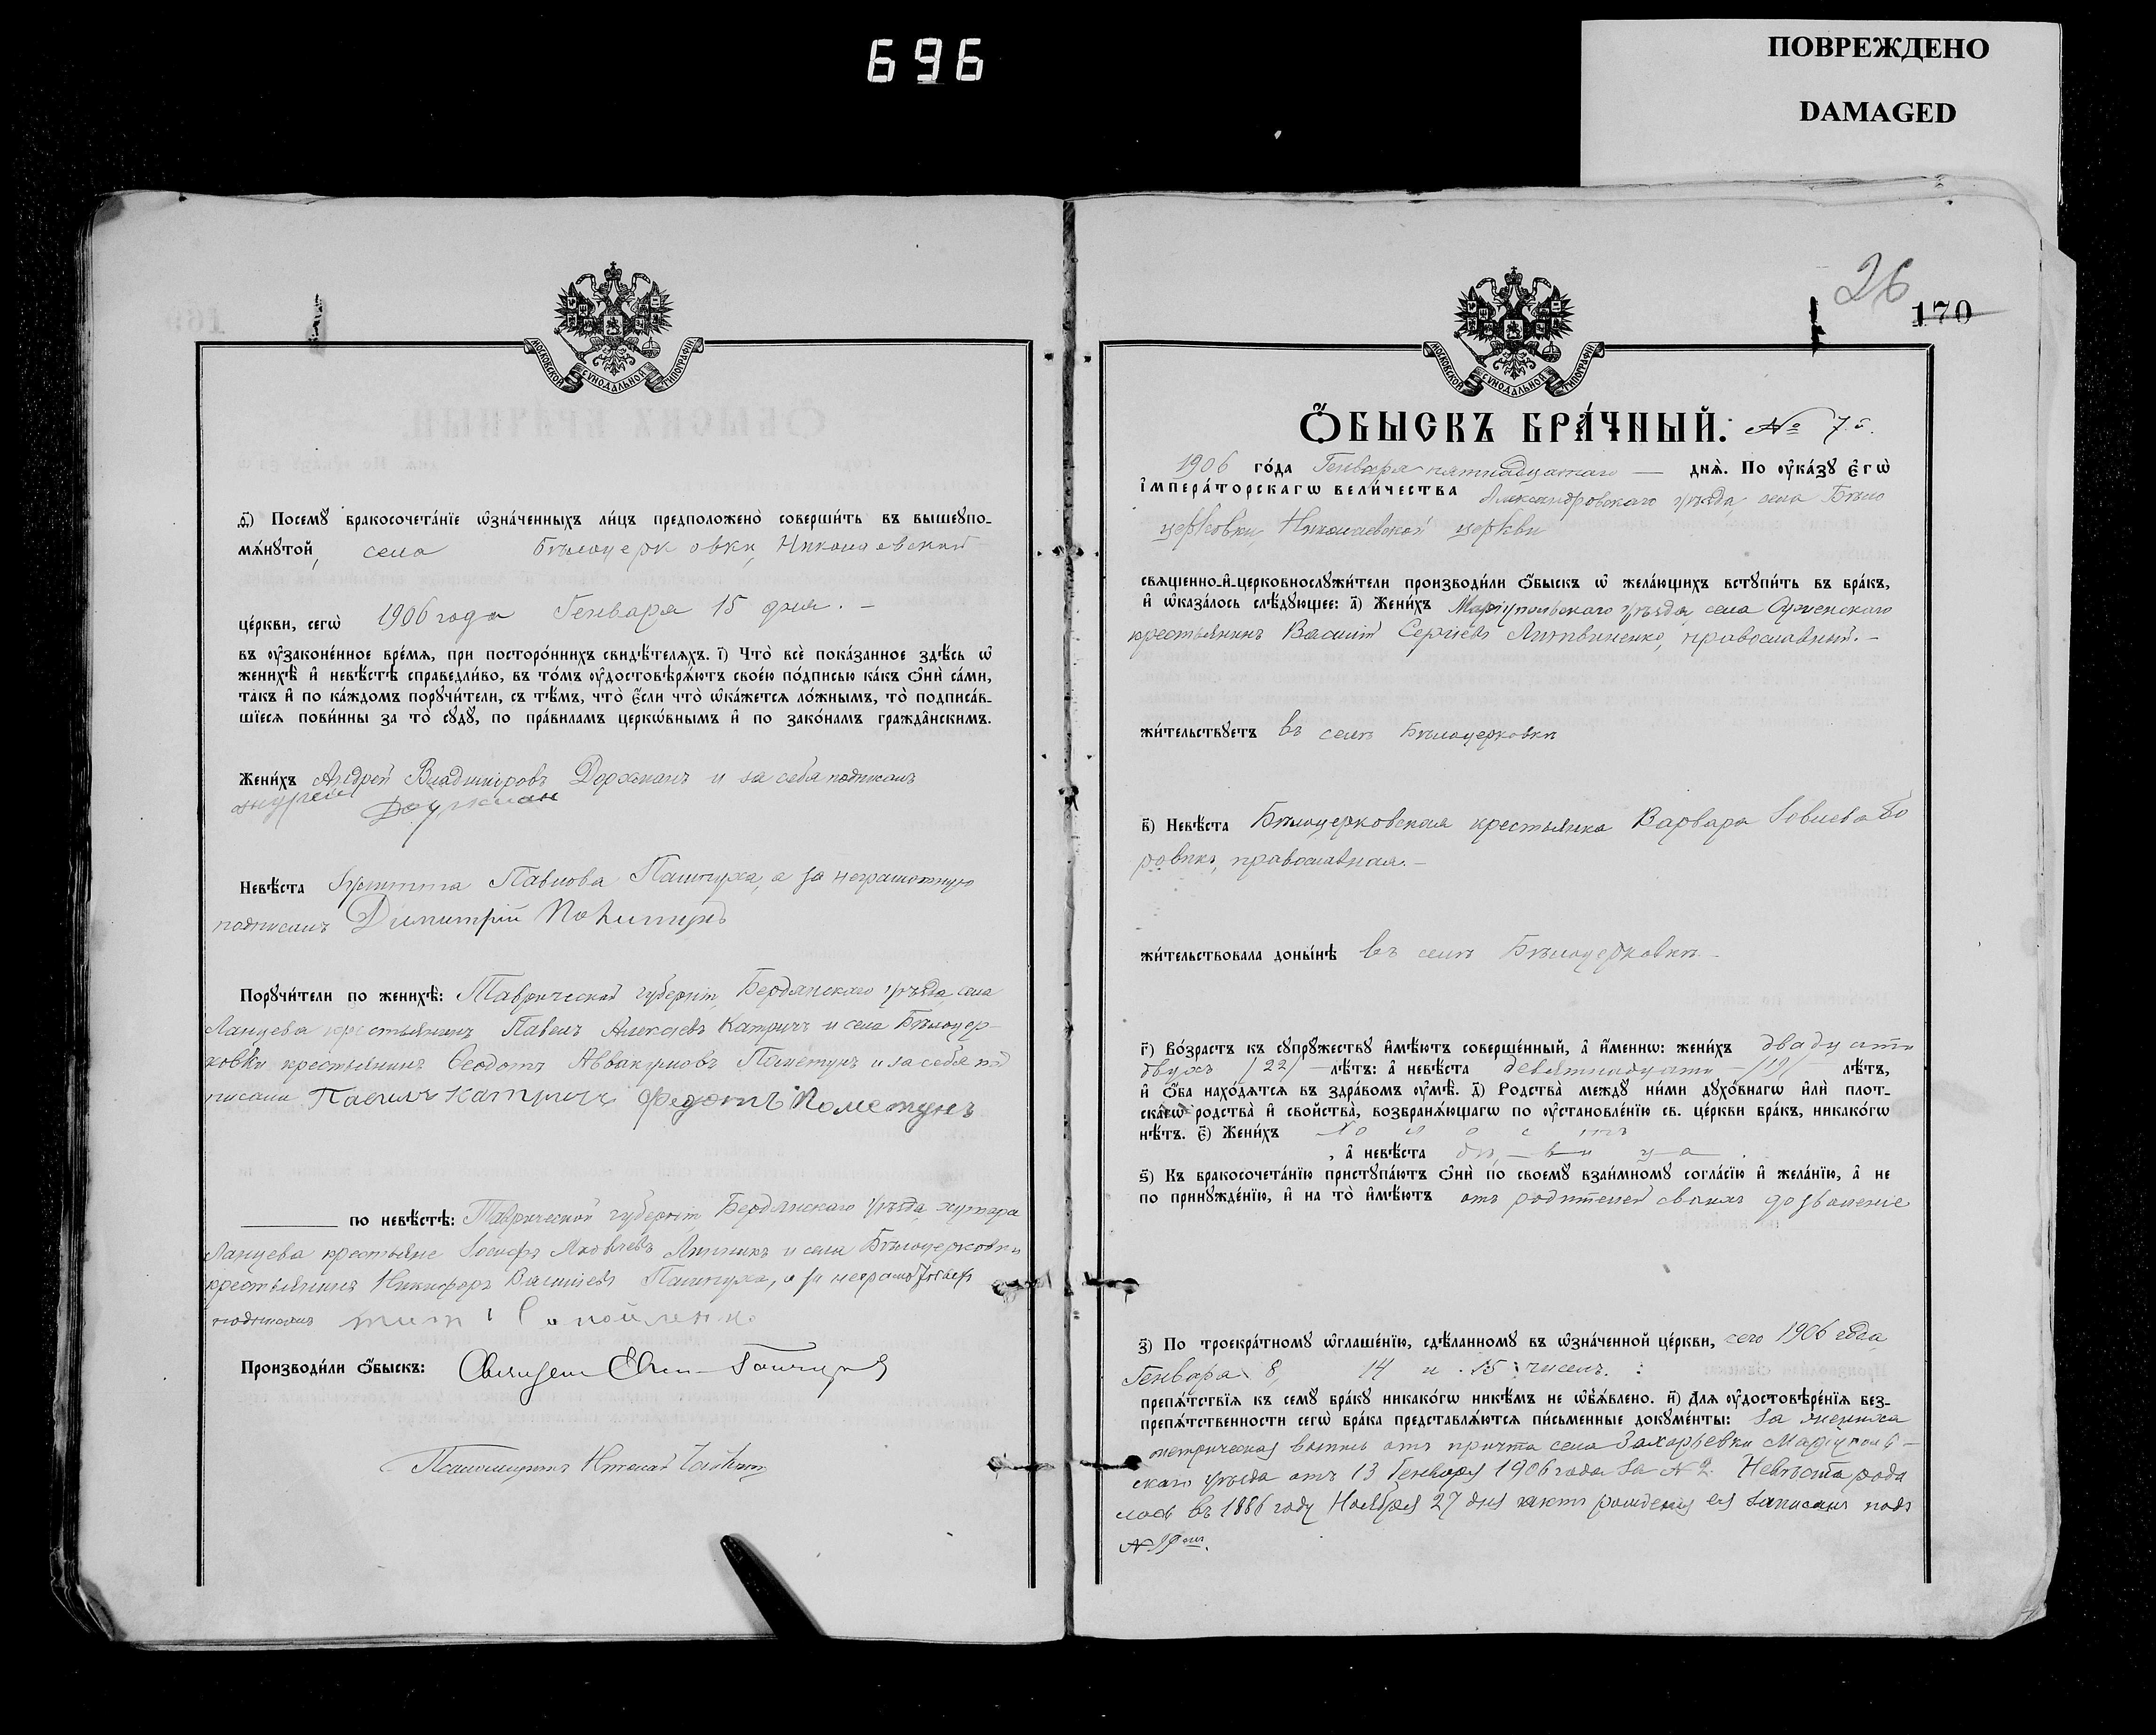 696
ПОВРЕЖДЕНО
DAMAGED
МОСКОВСКОЙ СѴНОДАЛЬНОЙ ТИПОГРАФІИ
ѳ҃) Посемꙋ бракосочета́нїе ѡ҆зна́ченныхъ ли́цъ предположено̀ соверши́ть въ вышеꙋпо-
мѧ́нꙋтой, села Бѣлоцерковки, Николаевской
це́ркви, сегѡ̀ 1906 года Генваря 15 дня. –
въ ᲂу҆законе́нное вре́мѧ, при посторо́ннихъ свидѣ́телѧхъ. і҃) Что̀ всѐ пока́занное здѣ́сь ѡ҆
женихѣ̀ и҆ невѣ́стѣ справедли́во, въ то́мъ ᲂу҆достовѣрѧ́ютъ свое́ю по́дписью ка́къ ѻ҆нѝ са́ми,
та́къ и҆ по ка́ждомъ порꙋчи́тели, съ тѣ́мъ, что̀ є҆́сли что̀ ѡ҆ка́жетсѧ ло́жнымъ, то̀ подписа́в-
шїесѧ пови́нны за то̀ сꙋдꙋ̀, по пра́виламъ церкѡ́внымъ и҆ по зако́намъ гражда̂нскимъ.
Жени́хъ Андрей Владиміровъ Доржианъ и за себя подписалъ
Андрей Доржиан
Невѣ́ста Павлова Пашпуха, а за неграмотную
подписалъ Димитрій
Порꙋчи́тели по женихѣ̀: Таврической губерніи, Бердянскаго уѣзда, села
Ланцева крестьянинъ Павелъ Алексѣевъ Катричъ и села Бѣлоцер-
ковки крестьянинъ Ѳеодотъ Аввакумовъ Пометунъ и за себя под
писали Павилъ Катричъ Федотъ Пометунъ
по невѣ́стѣ: Таврической губерніи Бердянскаго уѣзда, хутора
Ланцева крестьяне Іосифъ Яковлевъ Липникъ и села Бѣлоцерковки
крестьянинъ Никифоръ Васильевъ Пашпуха, а за неграмотныхъ
подписалъ
Производи́ли ѻ҆́быскъ: Священ
Псаломщикъ Николай
26
170
МОСКОВСКОЙ СѴНОДАЛЬНОЙ ТИПОГРАФІИ
Ѻ҆́БЫСКЪ БРА́ЧНЫЙ. № 7й.
1906 го́да Генваря пятнадцатаго — днѧ̀. По ᲂу҆ка́зꙋ є҆гѡ̀
і҆мпера́торскагѡ вели́чества Александровскаго уѣзда, села Бѣло
церковки Николаевской церкви
свѧще́нно-и҆-церковнослꙋжи́тели производи́ли ѻ҆́быскъ ѡ҆ жела́ющихъ встꙋпи́ть въ бра́къ,
и҆ ѡ҆каза́лось слѣ́дꙋющее: а҃) Жени́хъ Маріупольскаго уѣзда, села
крестьянинъ Василій Сергіевъ Литвиненко, православный. –
жи́тельствꙋетъ въ селѣ Бѣлоцерковкѣ
в҃) Невѣ́ста Бѣлоцерковская крестьянка Варвара Іовлева Бо
ровикъ, православная. –
жи́тельствовала доны́нѣ въ селѣ Бѣлоцерковкѣ. –
г҃) Во́зрастъ къ сꙋпрꙋ́жествꙋ и҆мѣ́ютъ соверше́нный, а҆ и҆́менно: жени́хъ двадцати
двухъ /22/ – лѣ́тъ: а҆ невѣ́ста девятнадцати – /19/ – лѣ́тъ,
и҆ ѻ҆́ба нахо́дѧтсѧ въ здра́вомъ ᲂу҆мѣ̀. д҃) Родства̀ междꙋ̀ ни́ми дꙋхо́внагѡ и҆лѝ пло́т-
скагѡ родства̀ и҆ сво́йства, возбранѧ́ющагѡ по ᲂу҆становле́нїю св. це́ркви бра́къ, никако́гѡ
нѣ́тъ. є҃) Жени́хъ холостъ
, а҆ невѣ́ста дѣвица
ѕ҃) Къ бракосочета́нїю пристꙋпа́ютъ ѻ҆нѝ по своемꙋ̀ взаи́мномꙋ согла́сїю и҆ жела́нїю, а҆ не
по принꙋжде́нїю, и҆ на то̀ и҆мѣ́ютъ отъ родителей своихъ дозволеніе
з҃) По троекра́тномꙋ ѡ҆глаше́нїю, сдѣ́ланномꙋ въ ѡ҆зна́ченной це́ркви, сего 1906 года
Генваря 8, 14 и 15 чиселъ.
препѧ́тствїѧ къ семꙋ̀ бра́кꙋ никако́гѡ никѣ́мъ не ѡ҆б̾ѧ́влено. и҃) Длѧ ᲂу҆достовѣре́нїѧ без-
препѧ́тственности сегѡ̀ бра́ка представлѧ́ютсѧ пи́сьменные докꙋме́нты: за жениха
метрическая выпись отъ причта села Захарьевки Маріуполь-
скаго уѣзда отъ 13 Генваря 1906 года за № 2. Невѣста роди
лась въ 1886 году Ноября 27 дня актъ рожденія ея записанъ подъ